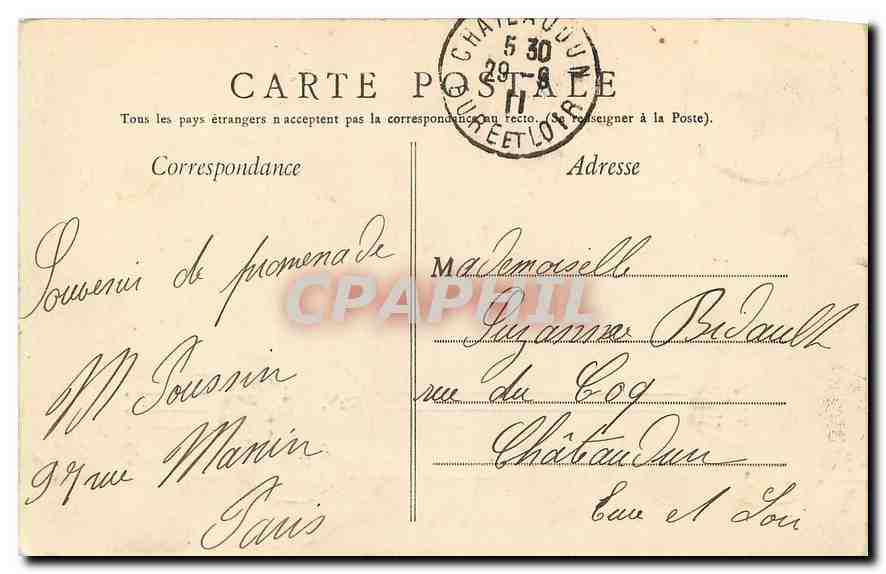 CHATEAUDUN
5 30
29 - 8
11
EURE ET LOIR
CARTE POSTALE
Tous les pays étrangers n acceptent pas la correspondance au recto. (Se renseigner à la Poste).
Correspondance
Adresse
Souvenir de promenade
M Poussin
97 rue Manin
Paris
Mademoiselle
Suzanne Bidault
rue du Coq
Châteaudun
Eure et Loir
CPAPHIL